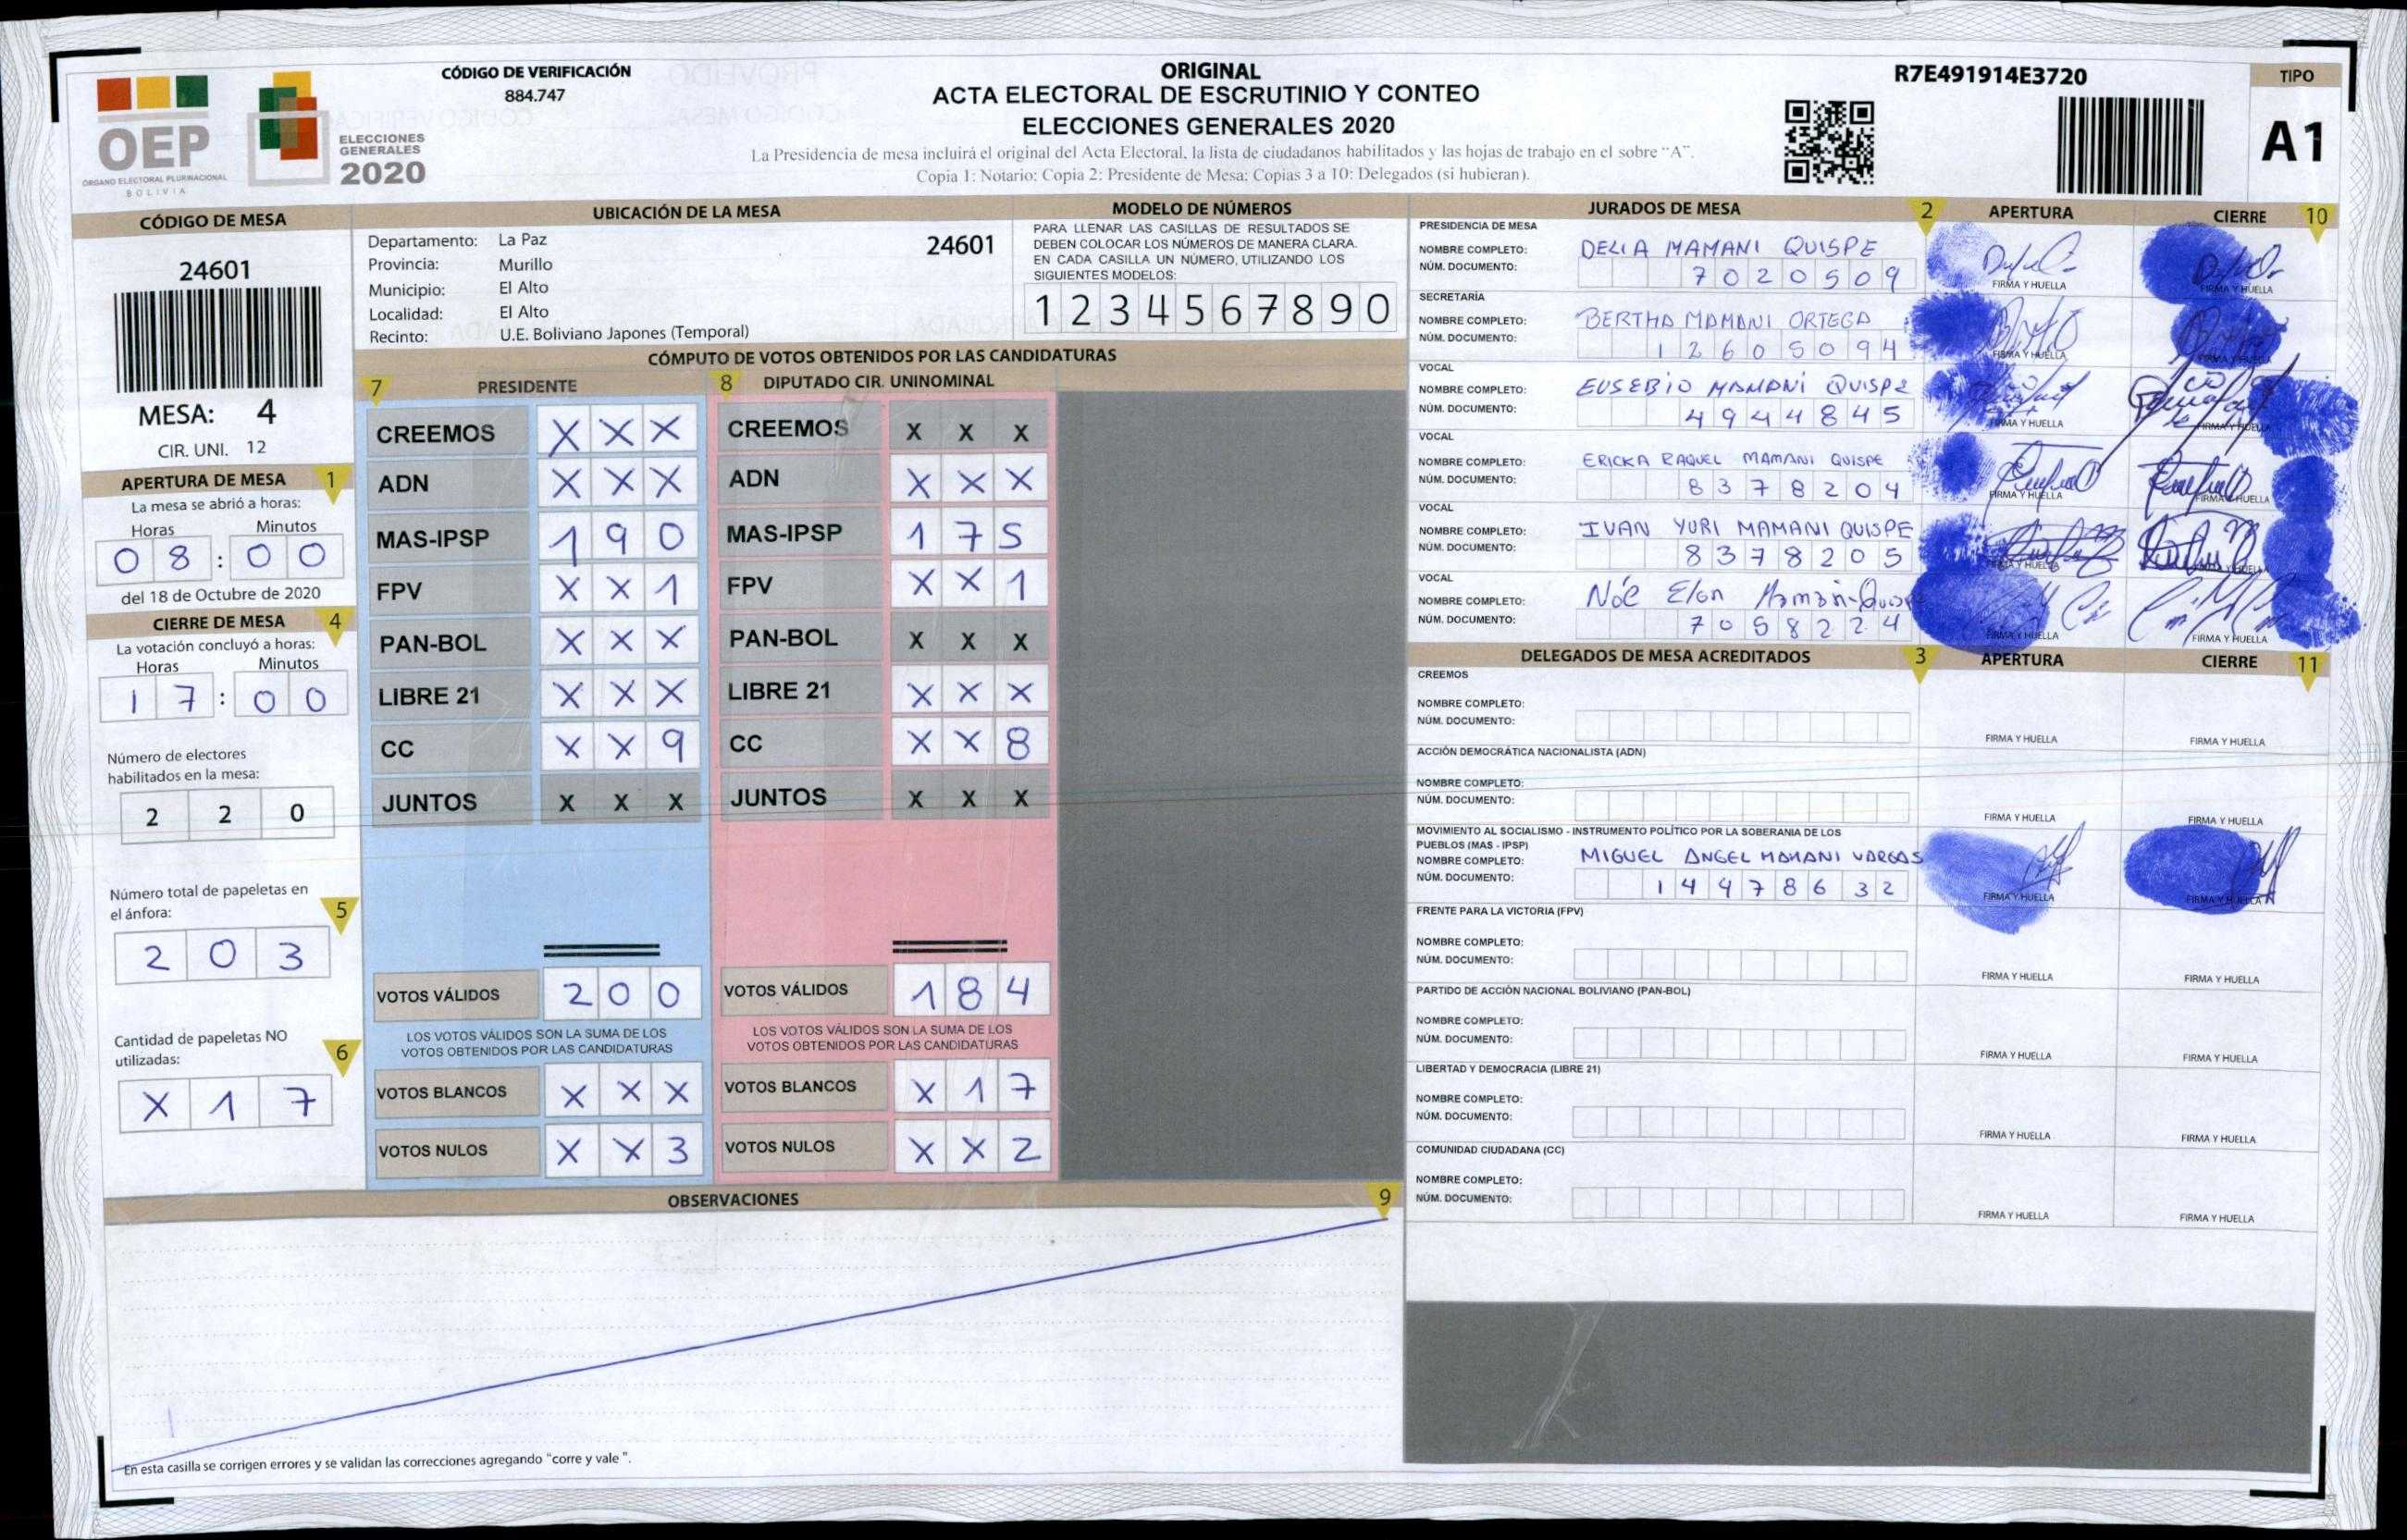 CÓDIGO DE VERIFICACIÓN
884.747
ORIGINAL
ACTA ELECTORAL DE ESCRUTINIO Y CONTEO
ELECCIONES GENERALES 2020
La Presidencia de mesa incluirá el original del Acta Electoral, la lista de ciudadanos habilitados y las hojas de trabajo en el sobre "A".
Copia 1: Notario; Copia 2: Presidente de Mesa; Copias 3 a 10: Delegados (si hubieran).
R7E491914E3720
TIPO
A1
OEP
ÓRGANO ELECTORAL PLURINACIONAL
BOLIVIA
ELECCIONES
GENERALES
2020
CÓDIGO DE MESA
24601
MESA: 4
CIR. UNI. 12
UBICACIÓN DE LA MESA
Departamento: La Paz
24601
Provincia: Murillo
Municipio: El Alto
Localidad: El Alto
Recinto: U.E. Boliviano Japones (Temporal)
MODELO DE NÚMEROS
PARA LLENAR LAS CASILLAS DE RESULTADOS SE
DEBEN COLOCAR LOS NÚMEROS DE MANERA CLARA.
EN CADA CASILLA UN NÚMERO, UTILIZANDO LOS
SIGUIENTES MODELOS:
1 2 3 4 5 6 7 8 9 0
APERTURA DE MESA 1
La mesa se abrió a horas:
Horas Minutos
0 8 : 0 0
del 18 de Octubre de 2020
CIERRE DE MESA 4
La votación concluyó a horas:
Horas Minutos
1 7 : 0 0
Número de electores
habilitados en la mesa:
2 2 0
Número total de papeletas en
el ánfora: 5
2 0 3
Cantidad de papeletas NO
utilizadas: 6
X 1 7
CÓMPUTO DE VOTOS OBTENIDOS POR LAS CANDIDATURAS
7 PRESIDENTE
CREEMOS X X X
ADN X X X
MAS-IPSP 1 9 0
FPV X X 1
PAN-BOL X X X
LIBRE 21 X X X
CC X X 9
JUNTOS X X X
VOTOS VÁLIDOS 2 0 0
LOS VOTOS VÁLIDOS SON LA SUMA DE LOS
VOTOS OBTENIDOS POR LAS CANDIDATURAS
VOTOS BLANCOS X X X
VOTOS NULOS X X 3
8 DIPUTADO CIR. UNINOMINAL
CREEMOS X X X
ADN X X X
MAS-IPSP 1 7 5
FPV X X 1
PAN-BOL X X X
LIBRE 21 X X X
CC X X 8
JUNTOS X X X
VOTOS VÁLIDOS 1 8 4
LOS VOTOS VÁLIDOS SON LA SUMA DE LOS
VOTOS OBTENIDOS POR LAS CANDIDATURAS
VOTOS BLANCOS X 1 7
VOTOS NULOS X X 2
OBSERVACIONES 9
En esta casilla se corrigen errores y se validan las correcciones agregando "corre y vale".
JURADOS DE MESA 2 APERTURA CIERRE 10
PRESIDENCIA DE MESA
NOMBRE COMPLETO: DELIA MAMANI QUISPE
NÚM. DOCUMENTO: 7 0 2 0 5 0 9
FIRMA Y HUELLA FIRMA Y HUELLA
SECRETARÍA
NOMBRE COMPLETO: BERTHA MAMANI ORTEGA
NÚM. DOCUMENTO: 1 2 6 0 5 0 9 4
FIRMA Y HUELLA FIRMA Y HUELLA
VOCAL
NOMBRE COMPLETO: EUSEBIO MAMANI QUISPE
NÚM. DOCUMENTO: 4 9 4 4 8 4 5
FIRMA Y HUELLA FIRMA Y HUELLA
VOCAL
NOMBRE COMPLETO: ERICKA RAQUEL MAMANI QUISPE
NÚM. DOCUMENTO: 8 3 7 8 2 0 4
FIRMA Y HUELLA FIRMA Y HUELLA
VOCAL
NOMBRE COMPLETO: IVAN YURI MAMANI QUISPE
NÚM. DOCUMENTO: 8 3 7 8 2 0 5
FIRMA Y HUELLA FIRMA Y HUELLA
VOCAL
NOMBRE COMPLETO: Nóe Elon Mamani Quispe
NÚM. DOCUMENTO: 7 0 5 8 2 2 4
FIRMA Y HUELLA FIRMA Y HUELLA
DELEGADOS DE MESA ACREDITADOS 3 APERTURA CIERRE 11
CREEMOS
NOMBRE COMPLETO:
NÚM. DOCUMENTO:
FIRMA Y HUELLA FIRMA Y HUELLA
ACCIÓN DEMOCRÁTICA NACIONALISTA (ADN)
NOMBRE COMPLETO:
NÚM. DOCUMENTO:
FIRMA Y HUELLA FIRMA Y HUELLA
MOVIMIENTO AL SOCIALISMO - INSTRUMENTO POLÍTICO POR LA SOBERANIA DE LOS
PUEBLOS (MAS - IPSP)
NOMBRE COMPLETO: MIGUEL ANGEL MAMANI VARGAS
NÚM. DOCUMENTO: 1 4 4 7 8 6 3 2
FIRMA Y HUELLA FIRMA Y HUELLA
FRENTE PARA LA VICTORIA (FPV)
NOMBRE COMPLETO:
NÚM. DOCUMENTO:
FIRMA Y HUELLA FIRMA Y HUELLA
PARTIDO DE ACCIÓN NACIONAL BOLIVIANO (PAN-BOL)
NOMBRE COMPLETO:
NÚM. DOCUMENTO:
FIRMA Y HUELLA FIRMA Y HUELLA
LIBERTAD Y DEMOCRACIA (LIBRE 21)
NOMBRE COMPLETO:
NÚM. DOCUMENTO:
FIRMA Y HUELLA FIRMA Y HUELLA
COMUNIDAD CIUDADANA (CC)
NOMBRE COMPLETO:
NÚM. DOCUMENTO:
FIRMA Y HUELLA FIRMA Y HUELLA